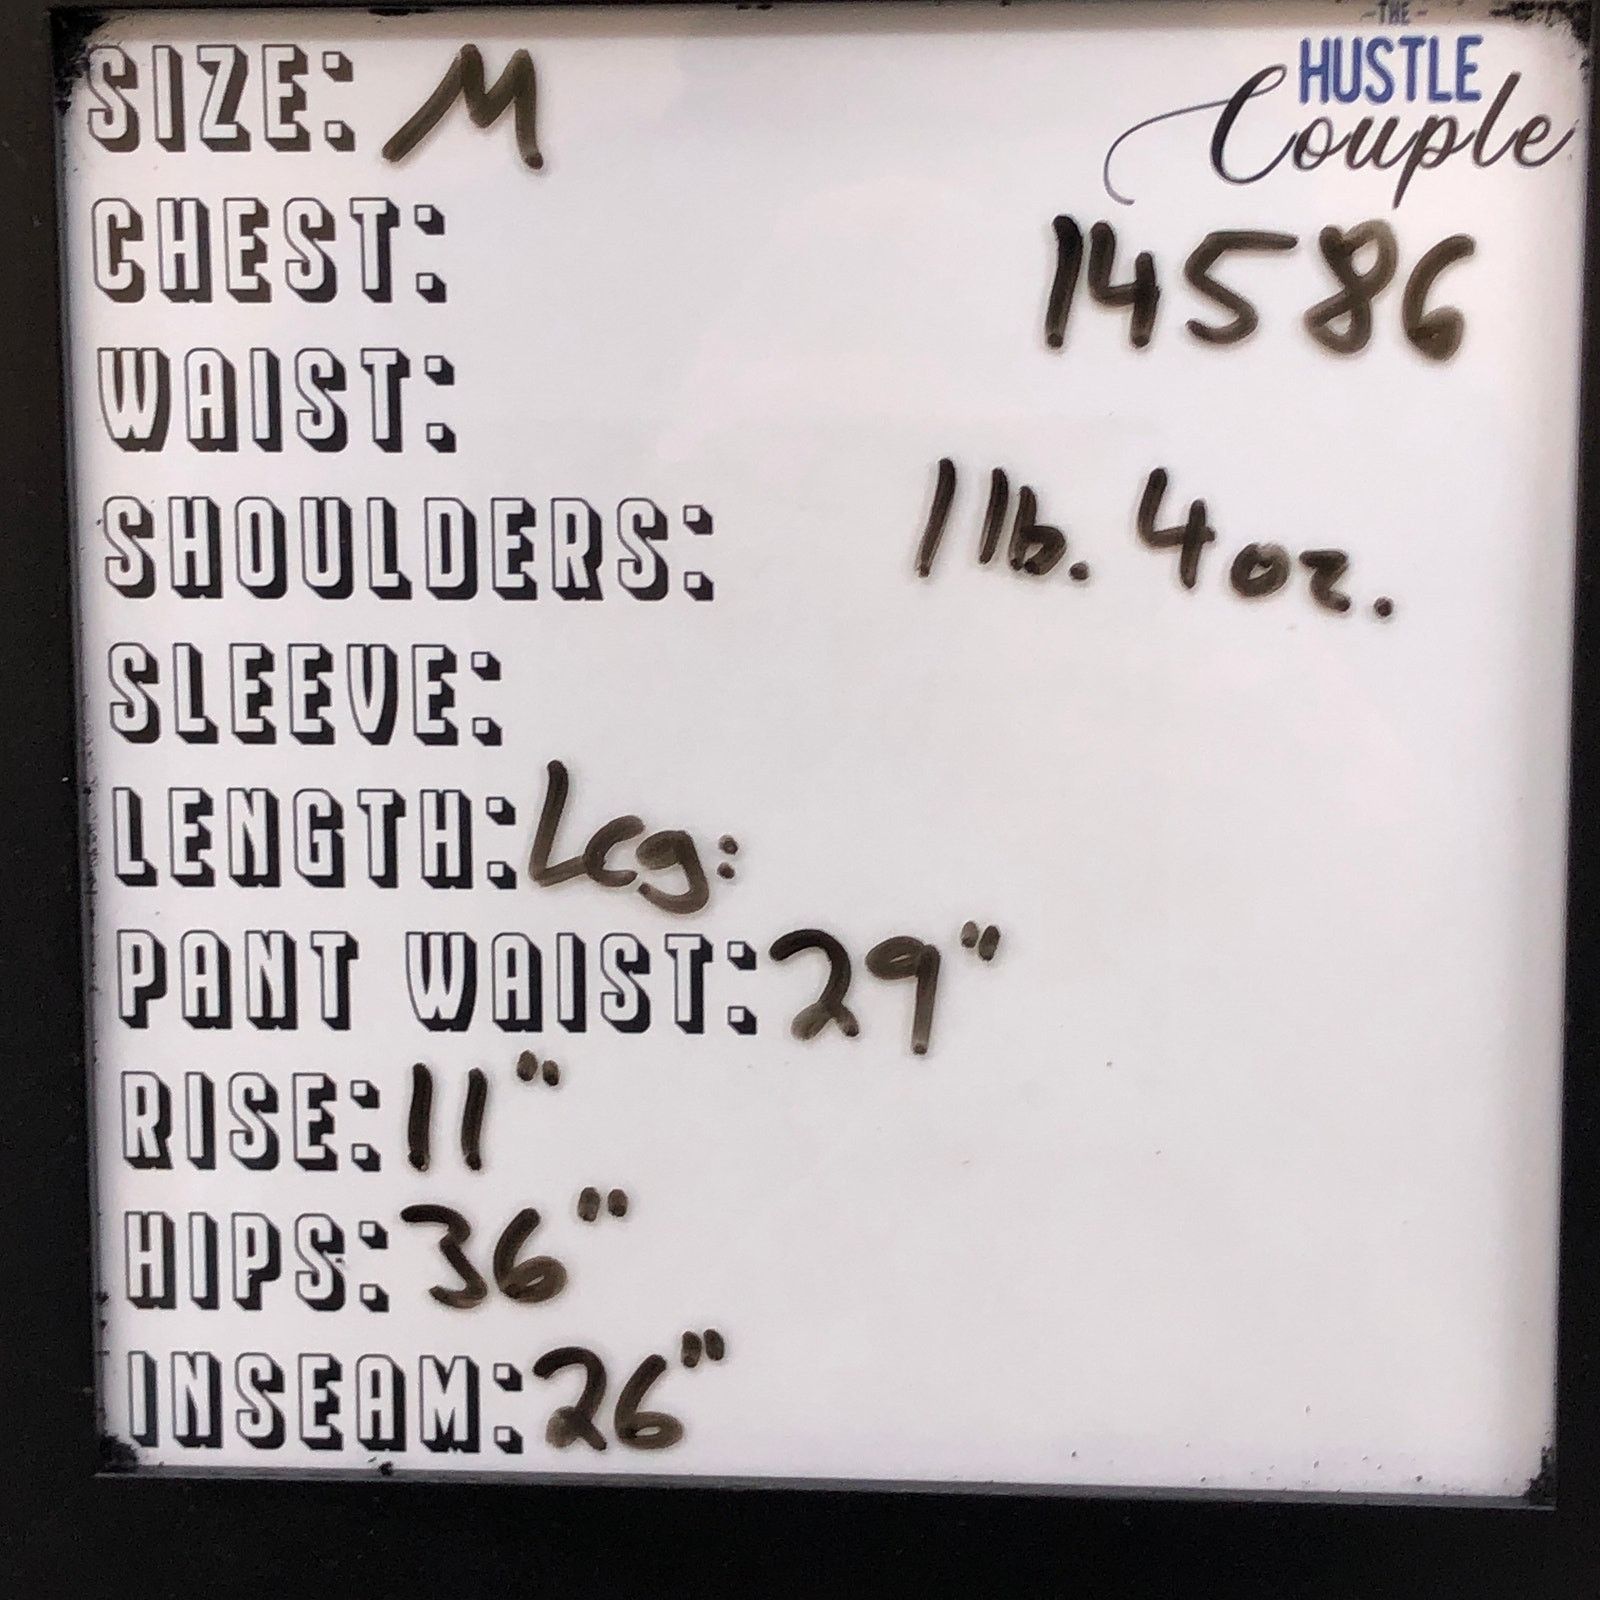 -THE-
HUSTLE
Couple
SIZE: M
CHEST:
14586
WAIST:
SHOULDERS:
1 lb. 4 oz.
SLEEVE:
LENGTH: Leg:
PANT WAIST: 29"
RISE: 11"
HIPS: 36"
INSEAM: 26"